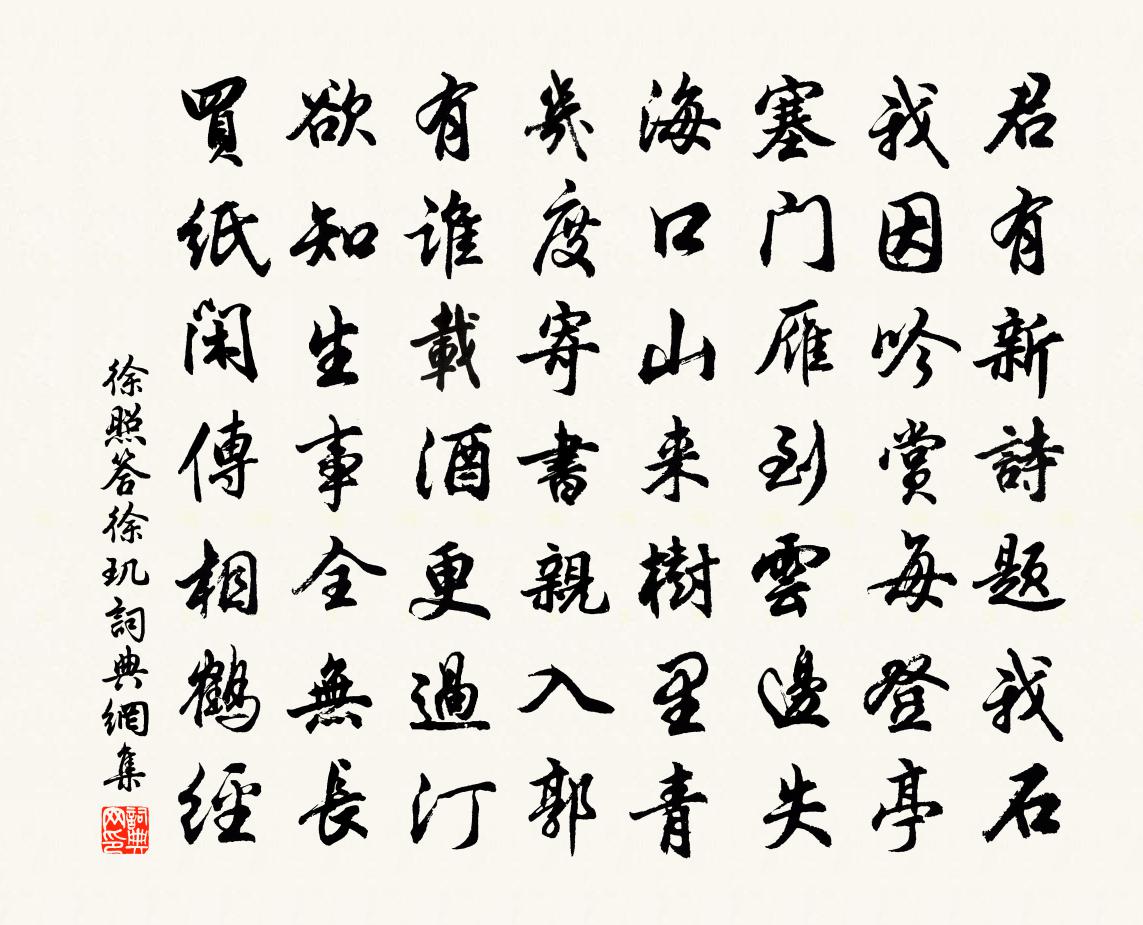 君有新詩題我石
我因吟賞每登亭
塞门雁到雲邊失
海口山来樹里青
幾度寄書親入郭
有誰載酒更過汀
欲知生事全無長
買紙闲傳相鶴經
徐照答徐玑詞典網集
詞典网印